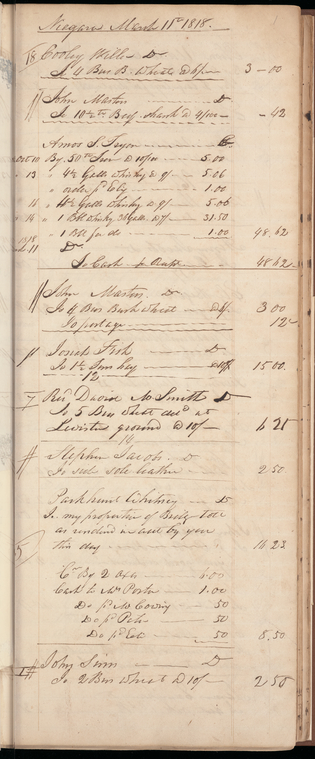 Niagara March 11th 1818.
18 Cooley Wills Dr
To 4 Bus B. Wheat @ 6/ 3-00
John Martin Dr
To 10 lb Beef shank @ -42
Amos S. Tryon Cr
10 By 50 lb Iron @ 10/ 5.00
13 " 4½ Galls Whisky @ 9/ 5.06
" order pr 1.00
16 " 4½ Galls Whisky @ 9/ 5.06
16 " 1 Bbl Whisky 36 Galls @ 7/ 31.50
1818 " 1 Bbl for do 1.00 48.62
11 Dr
To Cash 48.62
John Martin Dr
To 4 Bus Buck wheat @ 6/ 3.00
To portage 12
Josiah Fish Dr
To 1½ Tons hay 15.00
12
7 Revd David M Smith Dr
To 5 Bus wheat at
Lewiston ground @ 10/ 6 25
14
Stephen Jacobs Dr
To side sole leather 2.50
Parkhurst Whitney Dr
To my proportion of Bridge tole
as rendered in acct by you
5 this day 16.23
Cr By 2 axes 6.00
Cash to Mr Porter 1.00
Do pr McCowny 50
Do pr Peter 50
Do pr 50 8.50
John Sims Dr
To 2 Bus Wheat @ 10/ 2 50